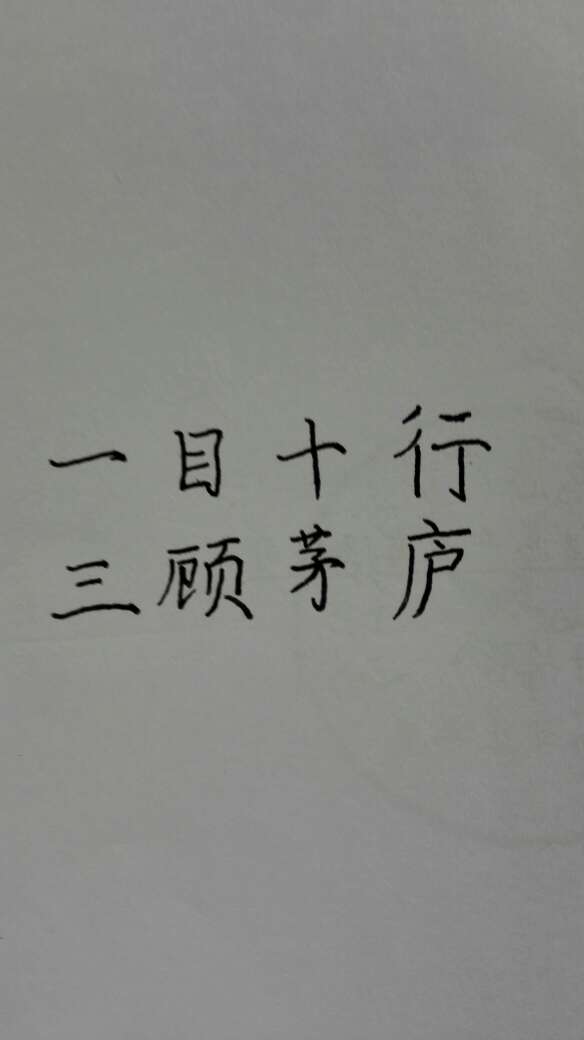 一目十行
三顾茅庐